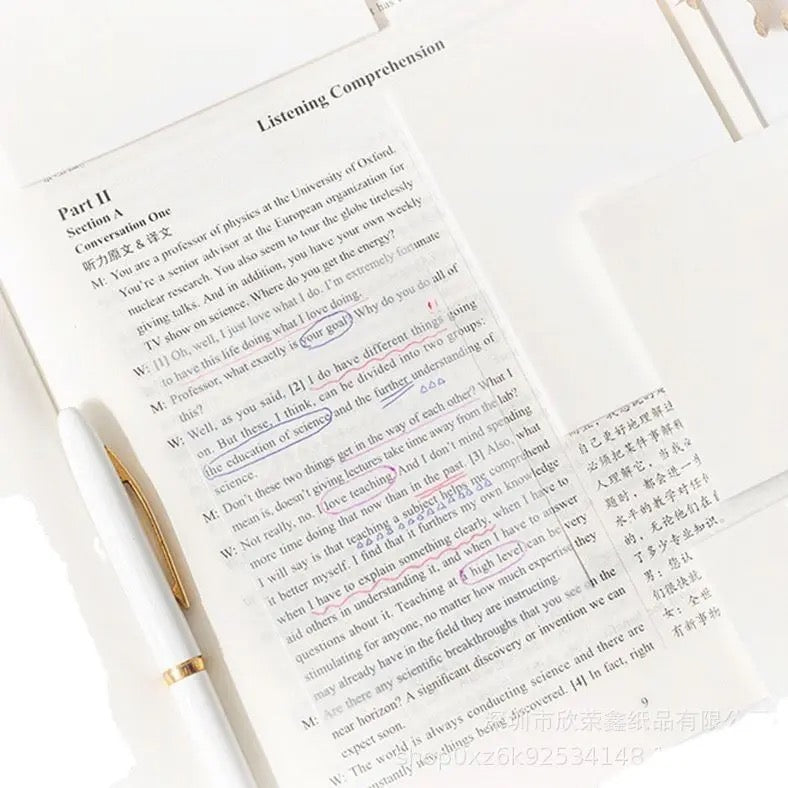 Listening Comprehension
Part II
Section A
Conversation One
听力原文 & 译文
M: You are a professor of physics at the University of Oxford.
You're a senior advisor at the European organization for
nuclear research. You also seem to tour the globe tirelessly
giving talks. And in addition, you have your own weekly
TV show on science. Where do you get the energy?
W: [1] Oh, well, I just love what I do. I'm extremely fortunate
to have this life doing what I love doing.
M: Professor, what exactly is your goal? Why do you do all of
this?
W: Well, as you said, [2] I do have different things going
on. But these, I think, can be divided into two groups:
the education of science and the further understanding of
science.
M: Don't these two things get in the way of each other? What I
mean is, doesn't giving lectures take time away from the lab?
W: Not really, no. I love teaching. And I don't mind spending
more time doing that now than in the past. [3] Also, what
I will say is that teaching a subject helps me comprehend
it better myself. I find that it furthers my own knowledge
when I have to explain something clearly, when I have to
aid others in understanding it, and when I have to answer
questions about it. Teaching at a high level can be very
stimulating for anyone, no matter how much expertise they
may already have in the field they are instructing.
M: Are there any scientific breakthroughs that you see on the
near horizon? A significant discovery or invention we can
expect soon.
W: The world is always conducting science and there are
constantly new things being discovered. [4] In fact, right
9
自己更好地理解这
必须把某件事解释
人理解它，当我必
题时，都会进一步
水平的教学对任何
的，无论他们在
了多少专业知识。
男：您认
们很快就
女：全世
有新事物
深圳市欣荣鑫纸品有限公
shop0xz6k92534148